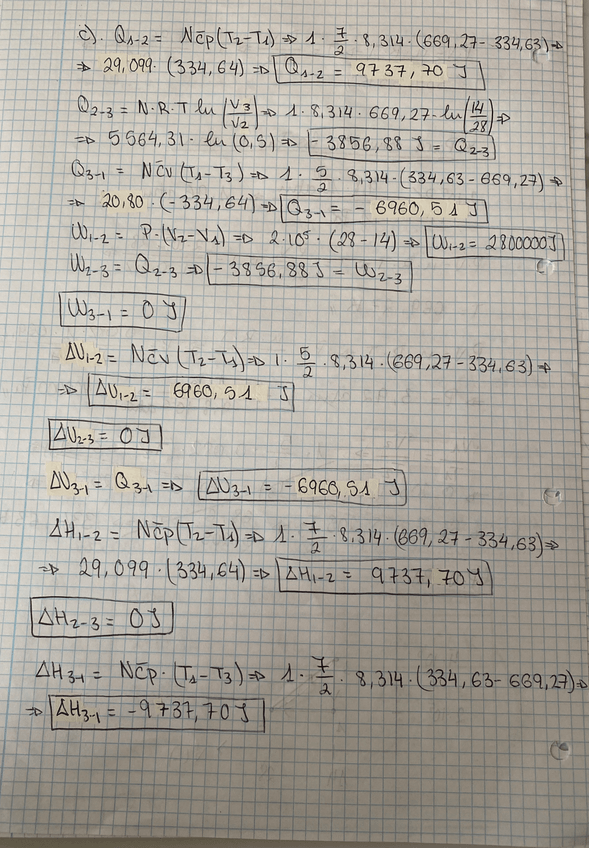 c). Q1-2 = Nc̄p(T2-T1) ⇒ 1 · 7/2 · 8,314 · (669,27 - 334,63) ⇒
⇒ 29,099 · (334,64) ⇒ Q1-2 = 9737,70 J
Q2-3 = N·R·T ln(V3/V2) ⇒ 1 · 8,314 · 669,27 · ln(14/28) ⇒
⇒ 5564,31 · ln(0,5) ⇒ -3856,88 J = Q2-3
Q3-1 = Nc̄v(T1-T3) ⇒ 1 · 5/2 · 8,314 · (334,63 - 669,27) ⇒
⇒ 20,80 · (-334,64) ⇒ Q3-1 = -6960,51 J
W1-2 = P·(V2-V1) ⇒ 2·10⁵ · (28-14) ⇒ W1-2 = 2800000J
W2-3 = Q2-3 ⇒ -3856,88J = W2-3
W3-1 = 0 J
ΔU1-2 = Nc̄v (T2-T1) ⇒ 1 · 5/2 · 8,314 · (669,27 - 334,63) ⇒
⇒ ΔU1-2 = 6960,51 J
ΔU2-3 = 0 J
ΔU3-1 = Q3-1 ⇒ ΔU3-1 = -6960,51 J
ΔH1-2 = Nc̄p(T2-T1) ⇒ 1 · 7/2 · 8,314 · (669,27 - 334,63) ⇒
⇒ 29,099 · (334,64) ⇒ ΔH1-2 = 9737,70 J
ΔH2-3 = 0J
ΔH3-1 = Nc̄p · (T1-T3) ⇒ 1 · 7/2 · 8,314 · (334,63 - 669,27) ⇒
⇒ ΔH3-1 = -9737,70 J